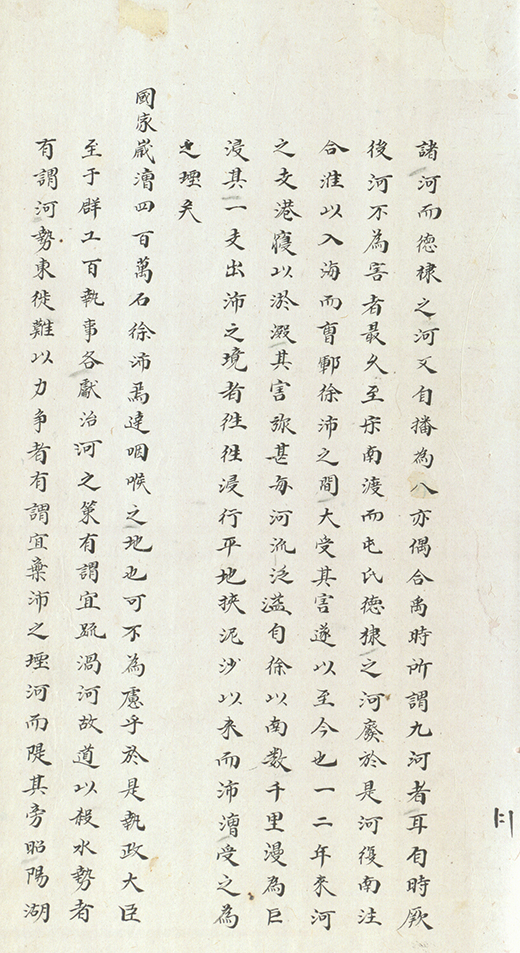 諸河而德棣之河又自播為八亦偶合禹時所謂九河者耳自時厥
後河不為害者最久至宋南渡而屯氏德棣之河廢於是河復南注
合淮以入海而曹鄆徐沛之間大受其害遂以至今也一二年來河
之支港寖以淤澱其害弥甚每河流泛溢自徐以南数千里漫為巨
浸其一支出沛之境者徃徃浸行平地挾泥沙以来而沛漕受之為
之堙矣
國家嵗漕四百萬石徐沛焉達咽喉之地也可不為慮乎於是執政大臣
至于群工百執事各獻治河之策有謂宜䟽渦河故道以殺水勢者
有謂河勢東徙難以力争者有謂宜棄沛之堙河而隄其旁昭陽湖